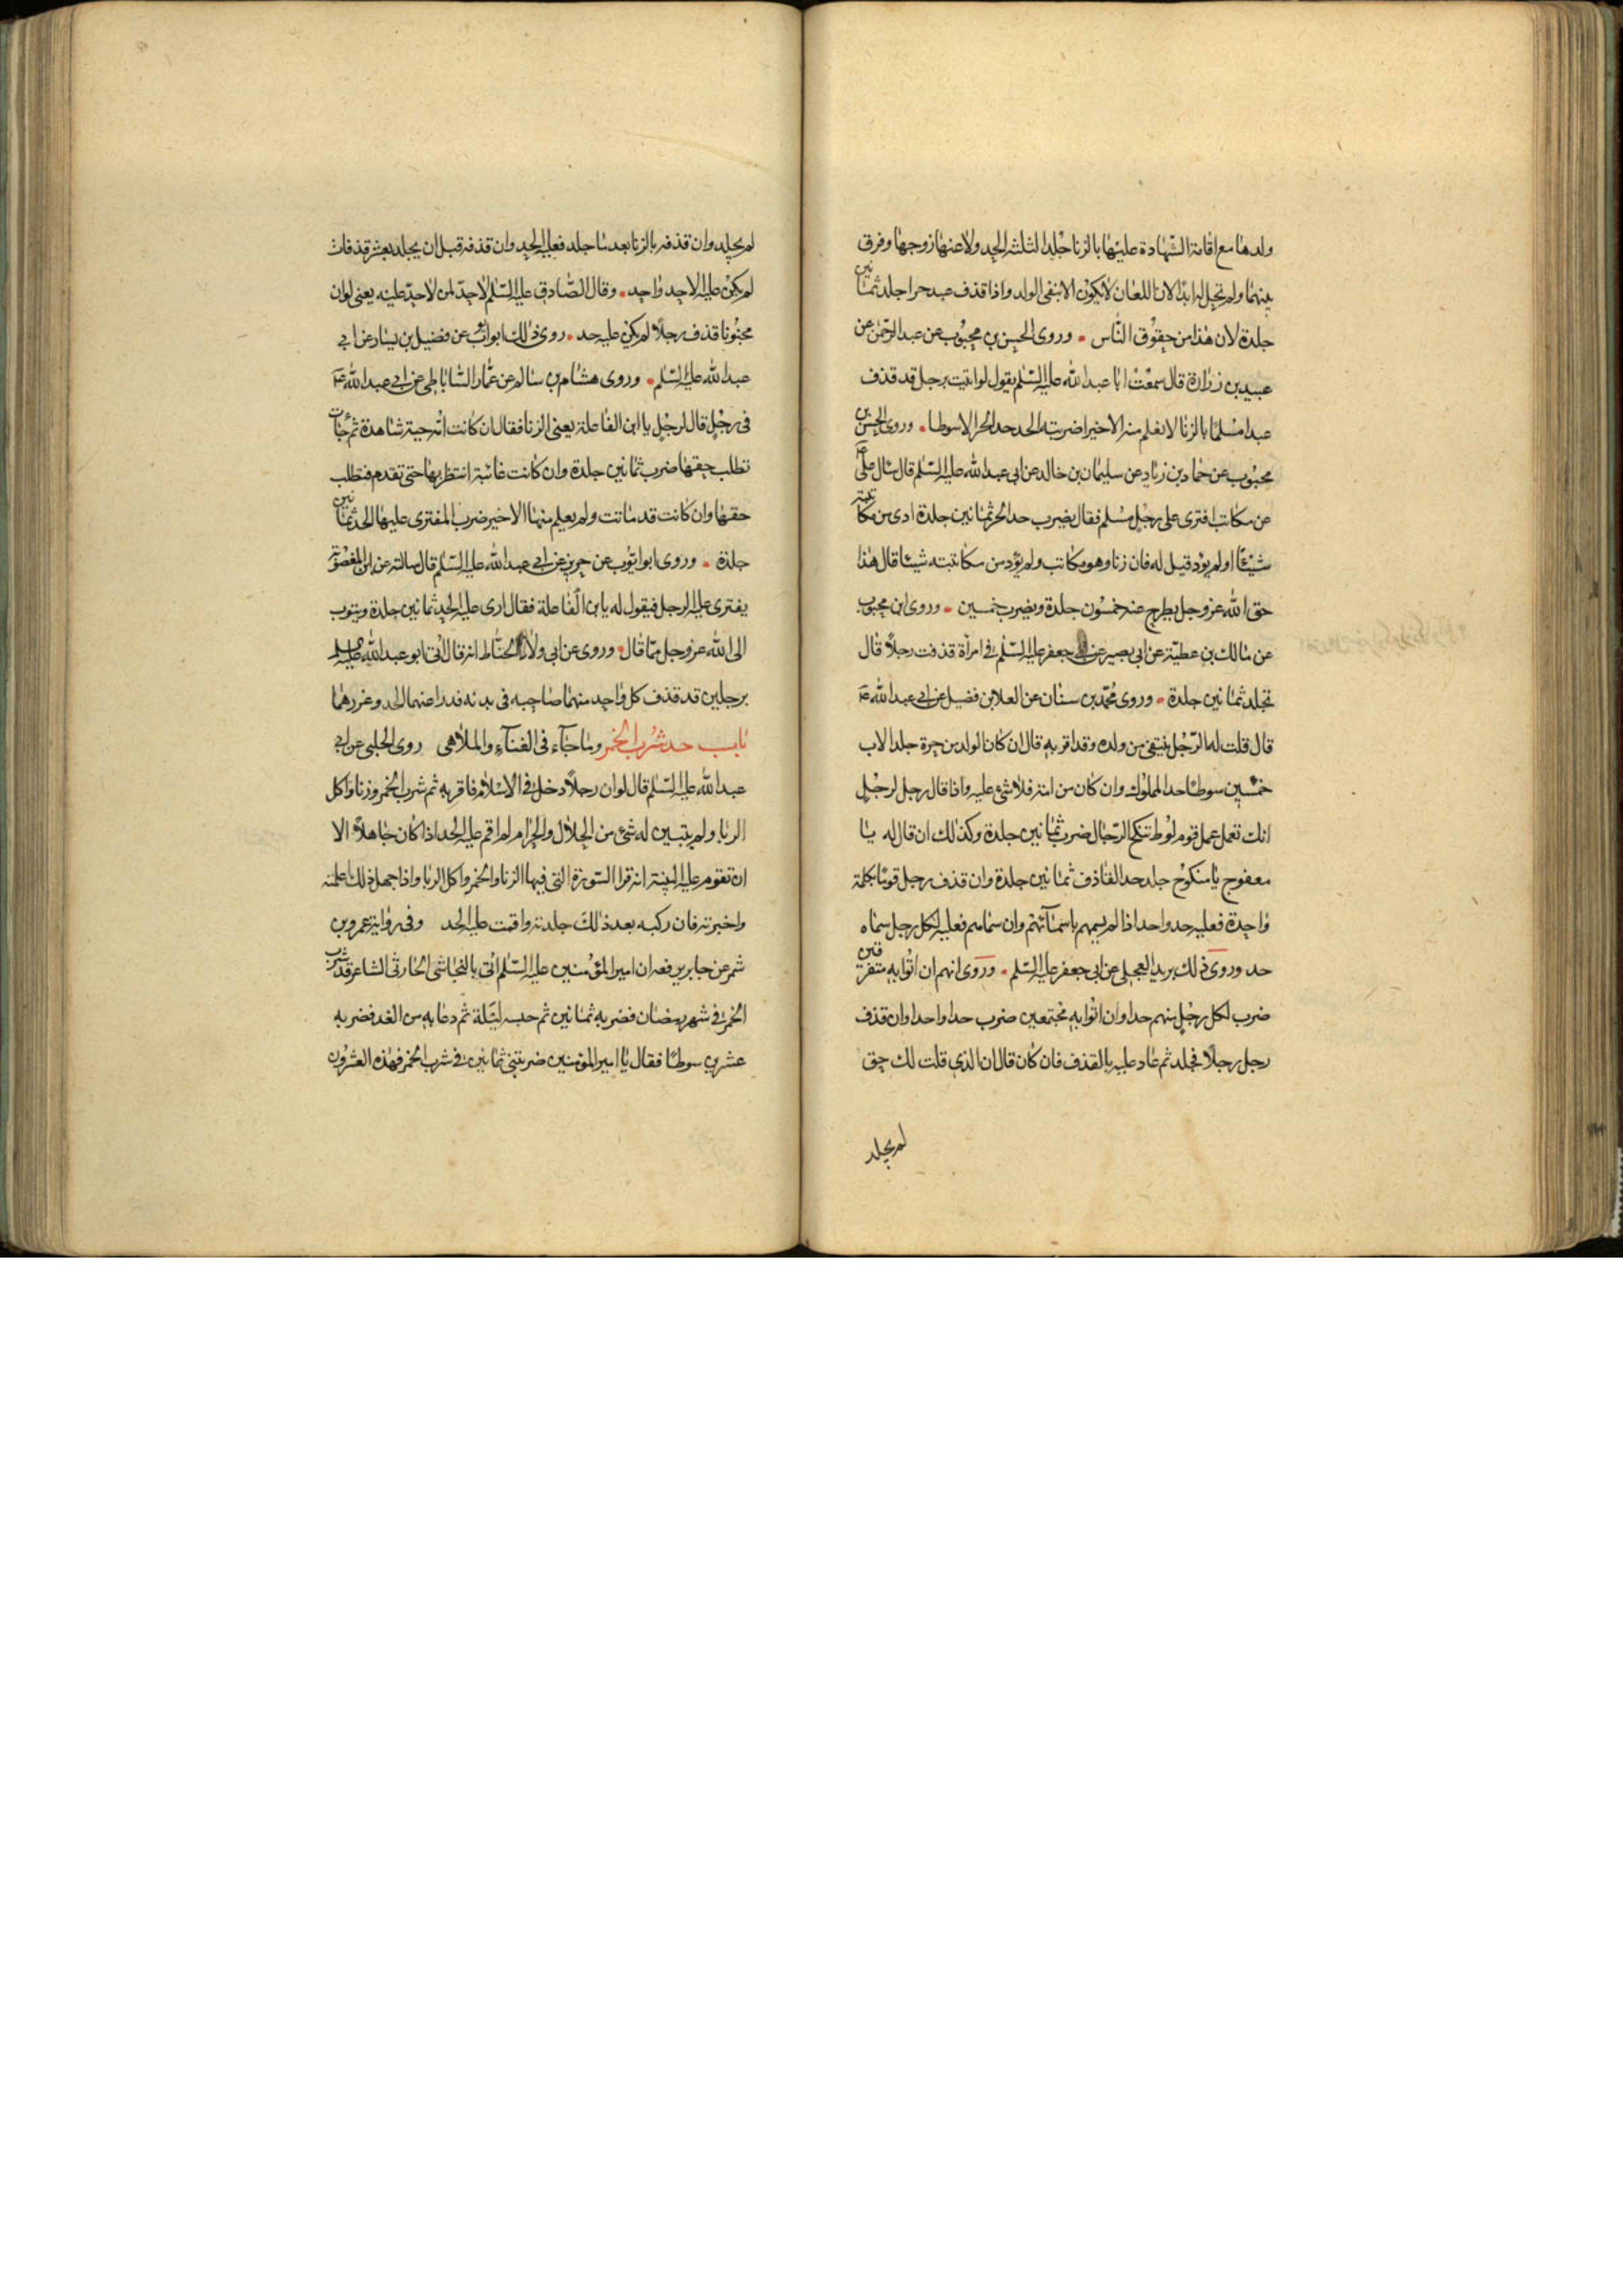 ولدها مع اقامة الشهادة عليها بالزنا جلد الثلثة الحد ولاعنها زوجها وفرق
بينهما ولم تحل له ابدا لان اللعان لا يكون الا بنفى الولد واذا قذف عبد حرا جلد ثمانين
جلدة لان هذا من حقوق الناس ۰ وروى الحسن بن محبوب عن عبد الرحمن عن
عبيد بن زرارة قال سمعت ابا عبد الله عليه السلم يقول لو اتيت برجل قد قذف
عبدا مسلما بالزنا لا نعلم منه الا خيرا لضربته الحد حد الحر الا سوطا ۰ وروى الحسن بن
محبوب عن حماد بن زياد عن سليمان بن خالد عن ابى عبد الله عليه السلم قال سئل على ع
عن مكاتب افترى على رجل مسلم فقال يضرب حد الحر ثمانين جلدة ادى من مكاتبته
شيئا او لم يؤد قيل له فان زنا وهو مكاتب ولم يؤد من مكاتبته شيئا قال هذا
حق الله عز وجل يطرح عنه خمسون جلدة ويضرب خمسين ۰ وروى ابن محبوب
عن مالك بن عطية عن ابى بصير عن ابى جعفر عليه السلم فى امرأة قذفت رجلا قال
تجلد ثمانين جلدة ۰ وروى محمد بن سنان عن العلا بن فضيل عن ابى عبد الله ع
قال قلت له الرجل ينتفى من ولده وقد اقر به قال ان كان الولد من حرة جلد الاب
خمسين سوطا حد المملوك وان كان من امته فلا شئ عليه واذا قال رجل لرجل
انك تعمل عمل قوم لوط تنكح الرجال ضرب ثمانين جلدة وكذلك ان قال له يا
معفوج يا منكوح جلد حد القاذف ثمانين جلدة وان قذف رجل قوما بكلمة
واحدة فعليه حد واحد اذا لم يسمهم باسمآئهم وان سماهم فعليه لكل رجل سماه
حد وروى ذلك بريد العجلى عن ابى جعفر عليه السلم ۰ وروى انهم ان اتوا به متفرقين
ضرب لكل رجل منهم حدا وان اتوا به مجتمعين ضرب حدا واحدا وان قذف
رجل رجلا فجلد ثم عاد عليه بالقذف فان كان قال ان الذى قلت لك حق
لم يجلد
لم يجلد وان قذفه بالزنا بعد ما جلد فعليه الحد وان قذفه قبل ان يجلد بعشر قذفات
لم يكن عليه الا حد واحد ۰ وقال الصادق عليه السلم لا حد لمن لا حد عليه يعنى لو ان
مجنونا قذف رجلا لم يكن عليه حد ۰ روى ذلك ابو ايوب عن فضيل بن يسار عن ابى
عبد الله عليه السلم ۰ وروى هشام بن سالم عن عمار الساباطى عن ابى عبد الله ع
فى رجل قال لرجل يا ابن الفاعلة يعنى الزنا فقال ان كانت امه حية شاهدة ثم جاءت
تطلب حقها ضرب ثمانين جلدة وان كانت غائبة انتظر بها حتى تقدم فتطلب
حقها وان كانت قد ماتت ولم يعلم منها الا خير ضرب المفترى عليها الحد ثمانين
جلدة ۰ وروى ابو ايوب عن حريز عن ابى عبد الله عليه السلم قال سالته عن ابن المغصوبة
يفترى عليه الرجل فيقول له يا بن الفاعلة فقال ارى عليه الحد ثمانين جلدة ويتوب
الى الله عز وجل مما قال ۰ وروى عن ابى ولاد الحناط انه قال اتى ابو عبد الله عليه السلم
برجلين قد قذف كل واحد منهما صاحبه فى بدنه فدرا عنهما الحد وعزرهما
باب حد شرب الخمر وما جآء فى الغنآء والملاهى روى الحلبى عن ابى
عبد الله عليه السلم قال لو ان رجلا دخل فى الاسلام فاقر به ثم شرب الخمر وزنا واكل
الربا ولم يتبين له شئ من الحلال والحرام لم اقم عليه الحد اذا كان جاهلا الا
ان تقوم عليه البينة انه قرا السورة التى فيها الزنا والخمر واكل الربا واذا جهل ذلك اعلمته
واخبرته فان ركبه بعد ذلك جلدته واقمت عليه الحد وفى رواية عمرو بن
شمر عن جابر يرفعه ان امير المؤمنين عليه السلم اتى بالنجاشى الحارثى الشاعر قد شرب
الخمر فى شهر رمضان فضربه ثمانين ثم حبسه ليلة ثم دعا به من الغد فضربه
عشرين سوطا فقال يا امير المؤمنين ضربتنى ثمانين فى شرب الخمر فهذه العشرون